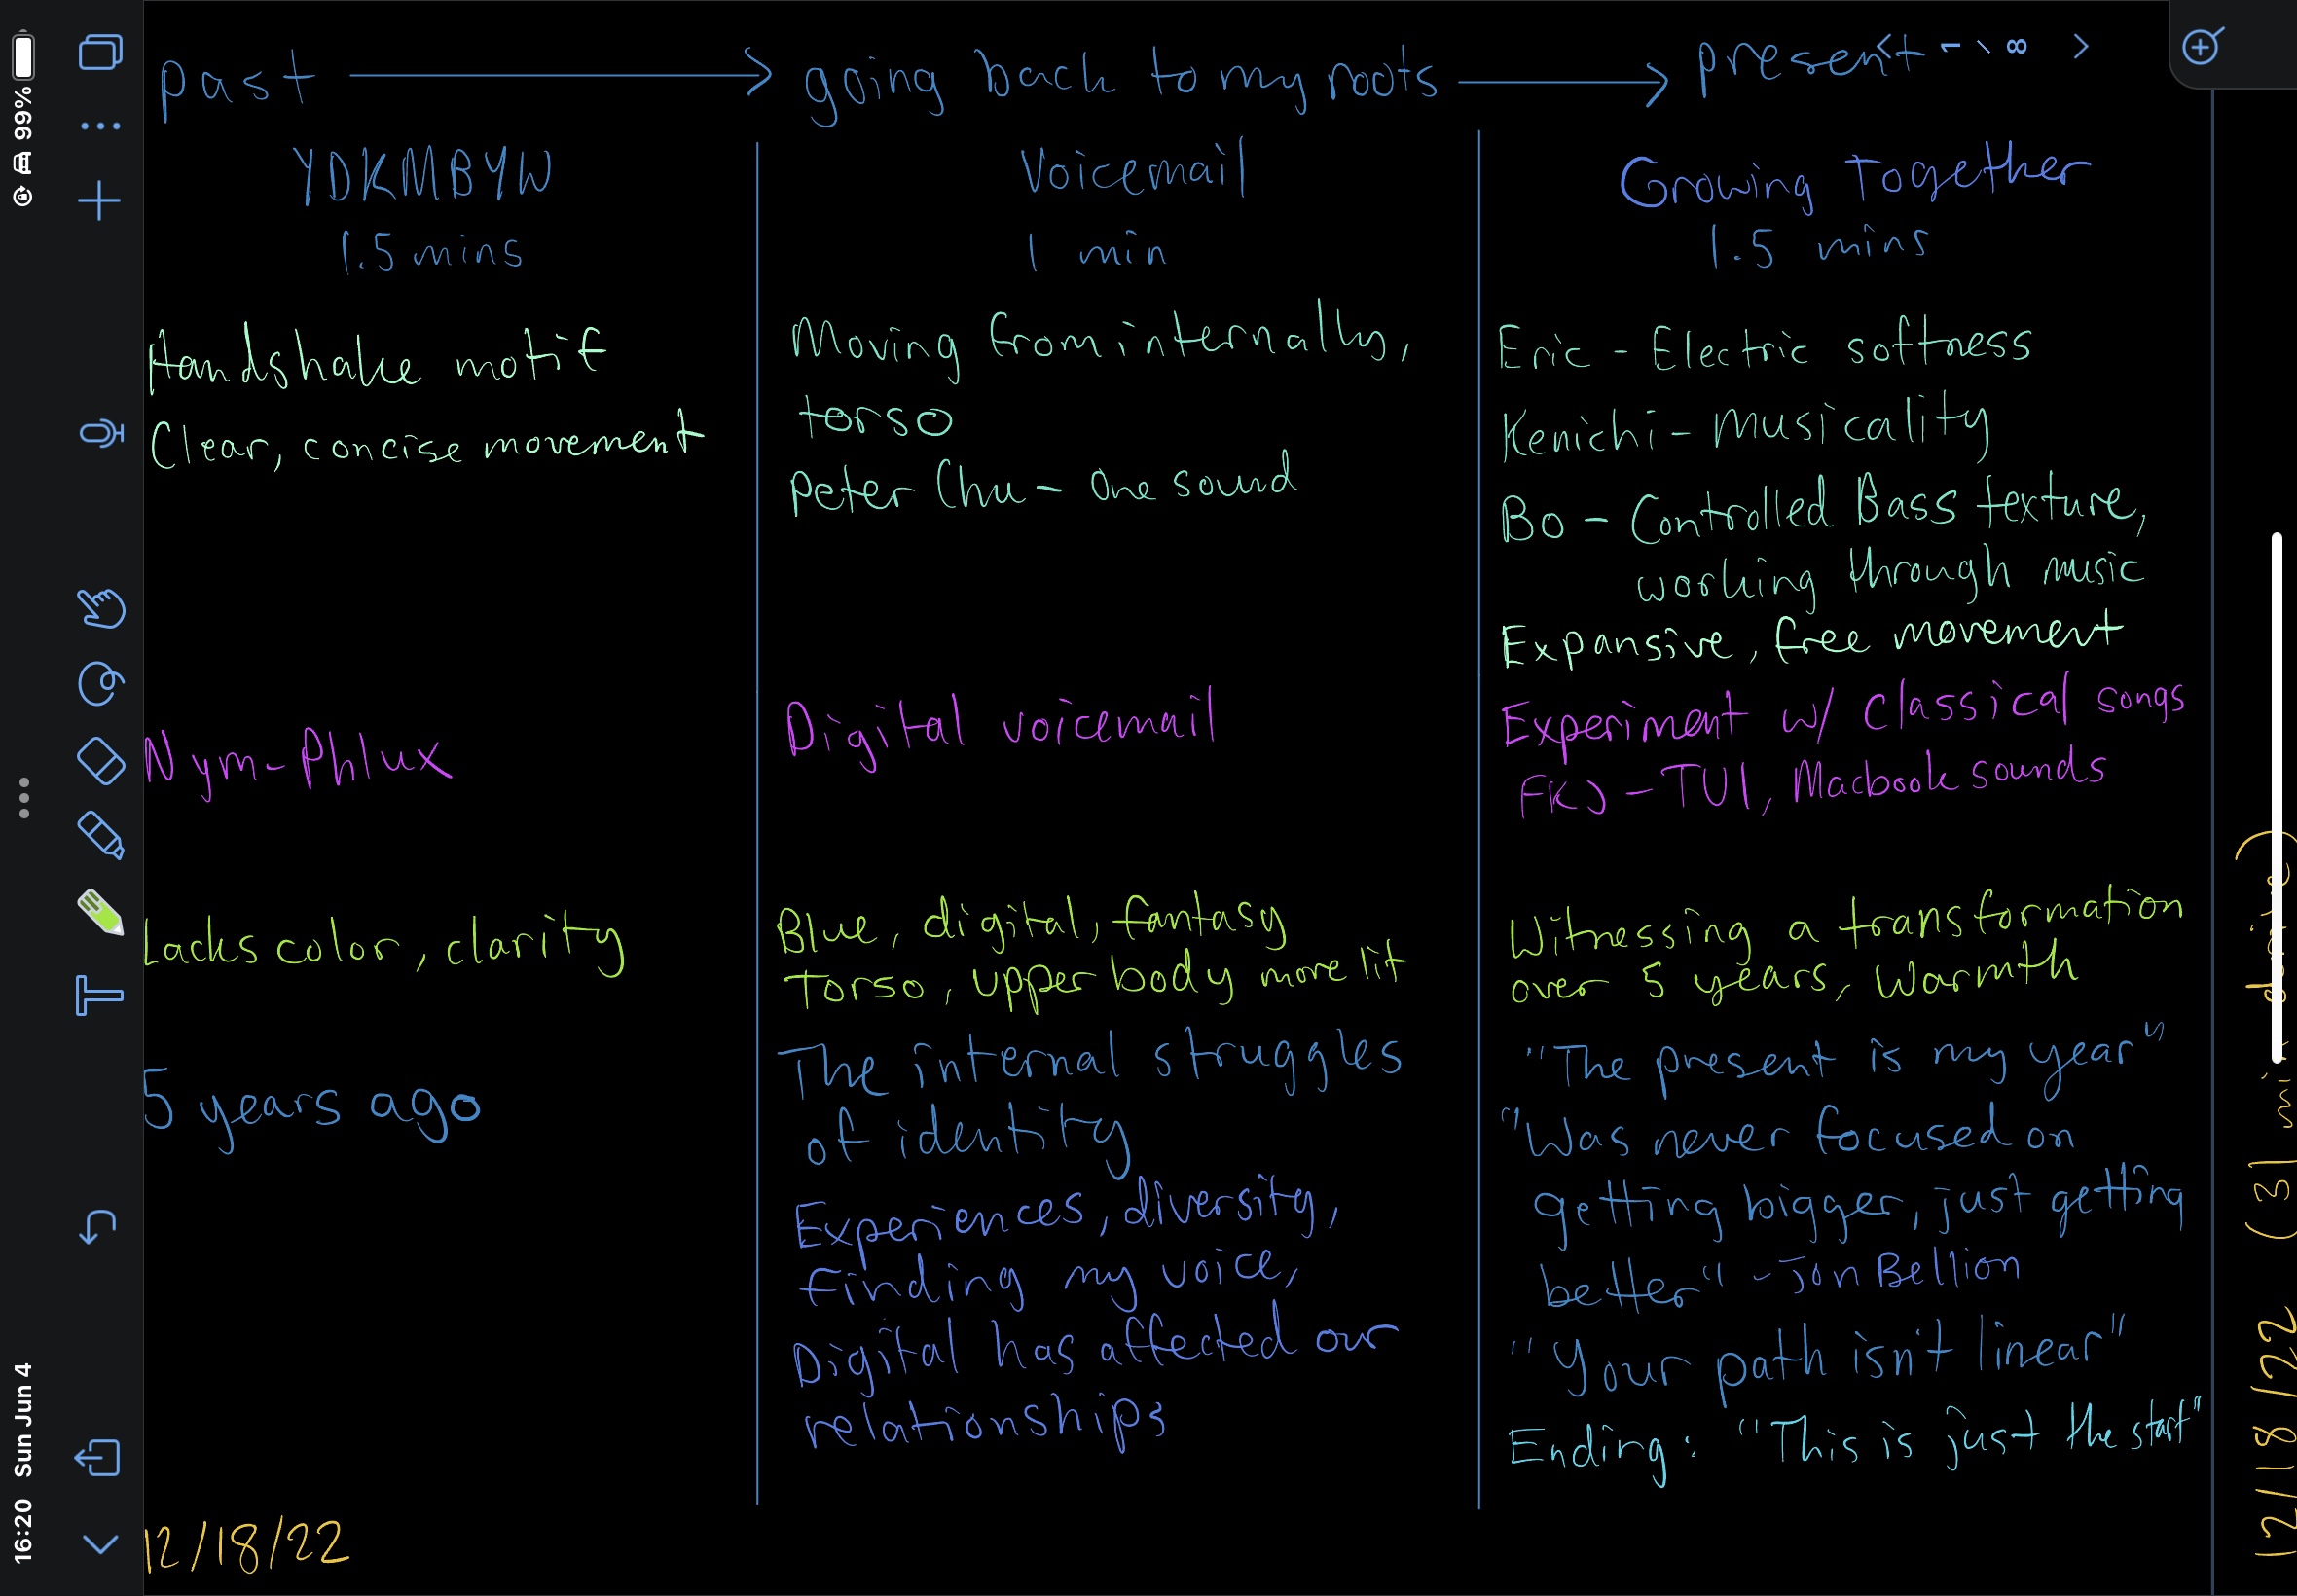 past → going back to my roots → present
YDKMBYW
1.5 mins
Handshake motif
Clear, concise movement
Nym-Phlux
Lacks color, clarity
5 years ago
12/18/22
Voicemail
1 min
Moving from internally,
torso
Peter Chu - One sound
Digital voicemail
Blue, digital, fantasy
Torso, upper body more lit
The internal struggles
of identity
Experiences, diversity,
finding my voice,
Digital has affected our
relationships
Growing Together
1.5 mins
Eric - Electric softness
Kenichi - Musicality
Bo - Controlled Bass texture,
working through music
Expansive, free movement
Experiment w/ Classical songs
FKJ - TUI, Macbook sounds
Witnessing a transformation
over 5 years, Warmth
"The present is my year"
"Was never focused on
getting bigger, just getting
better" - Jon Bellion
"Your path isn't linear"
Ending: "This is just the start"
1 \ 8
16:20 Sun Jun 4
99%
T
12/18/22 (31 min